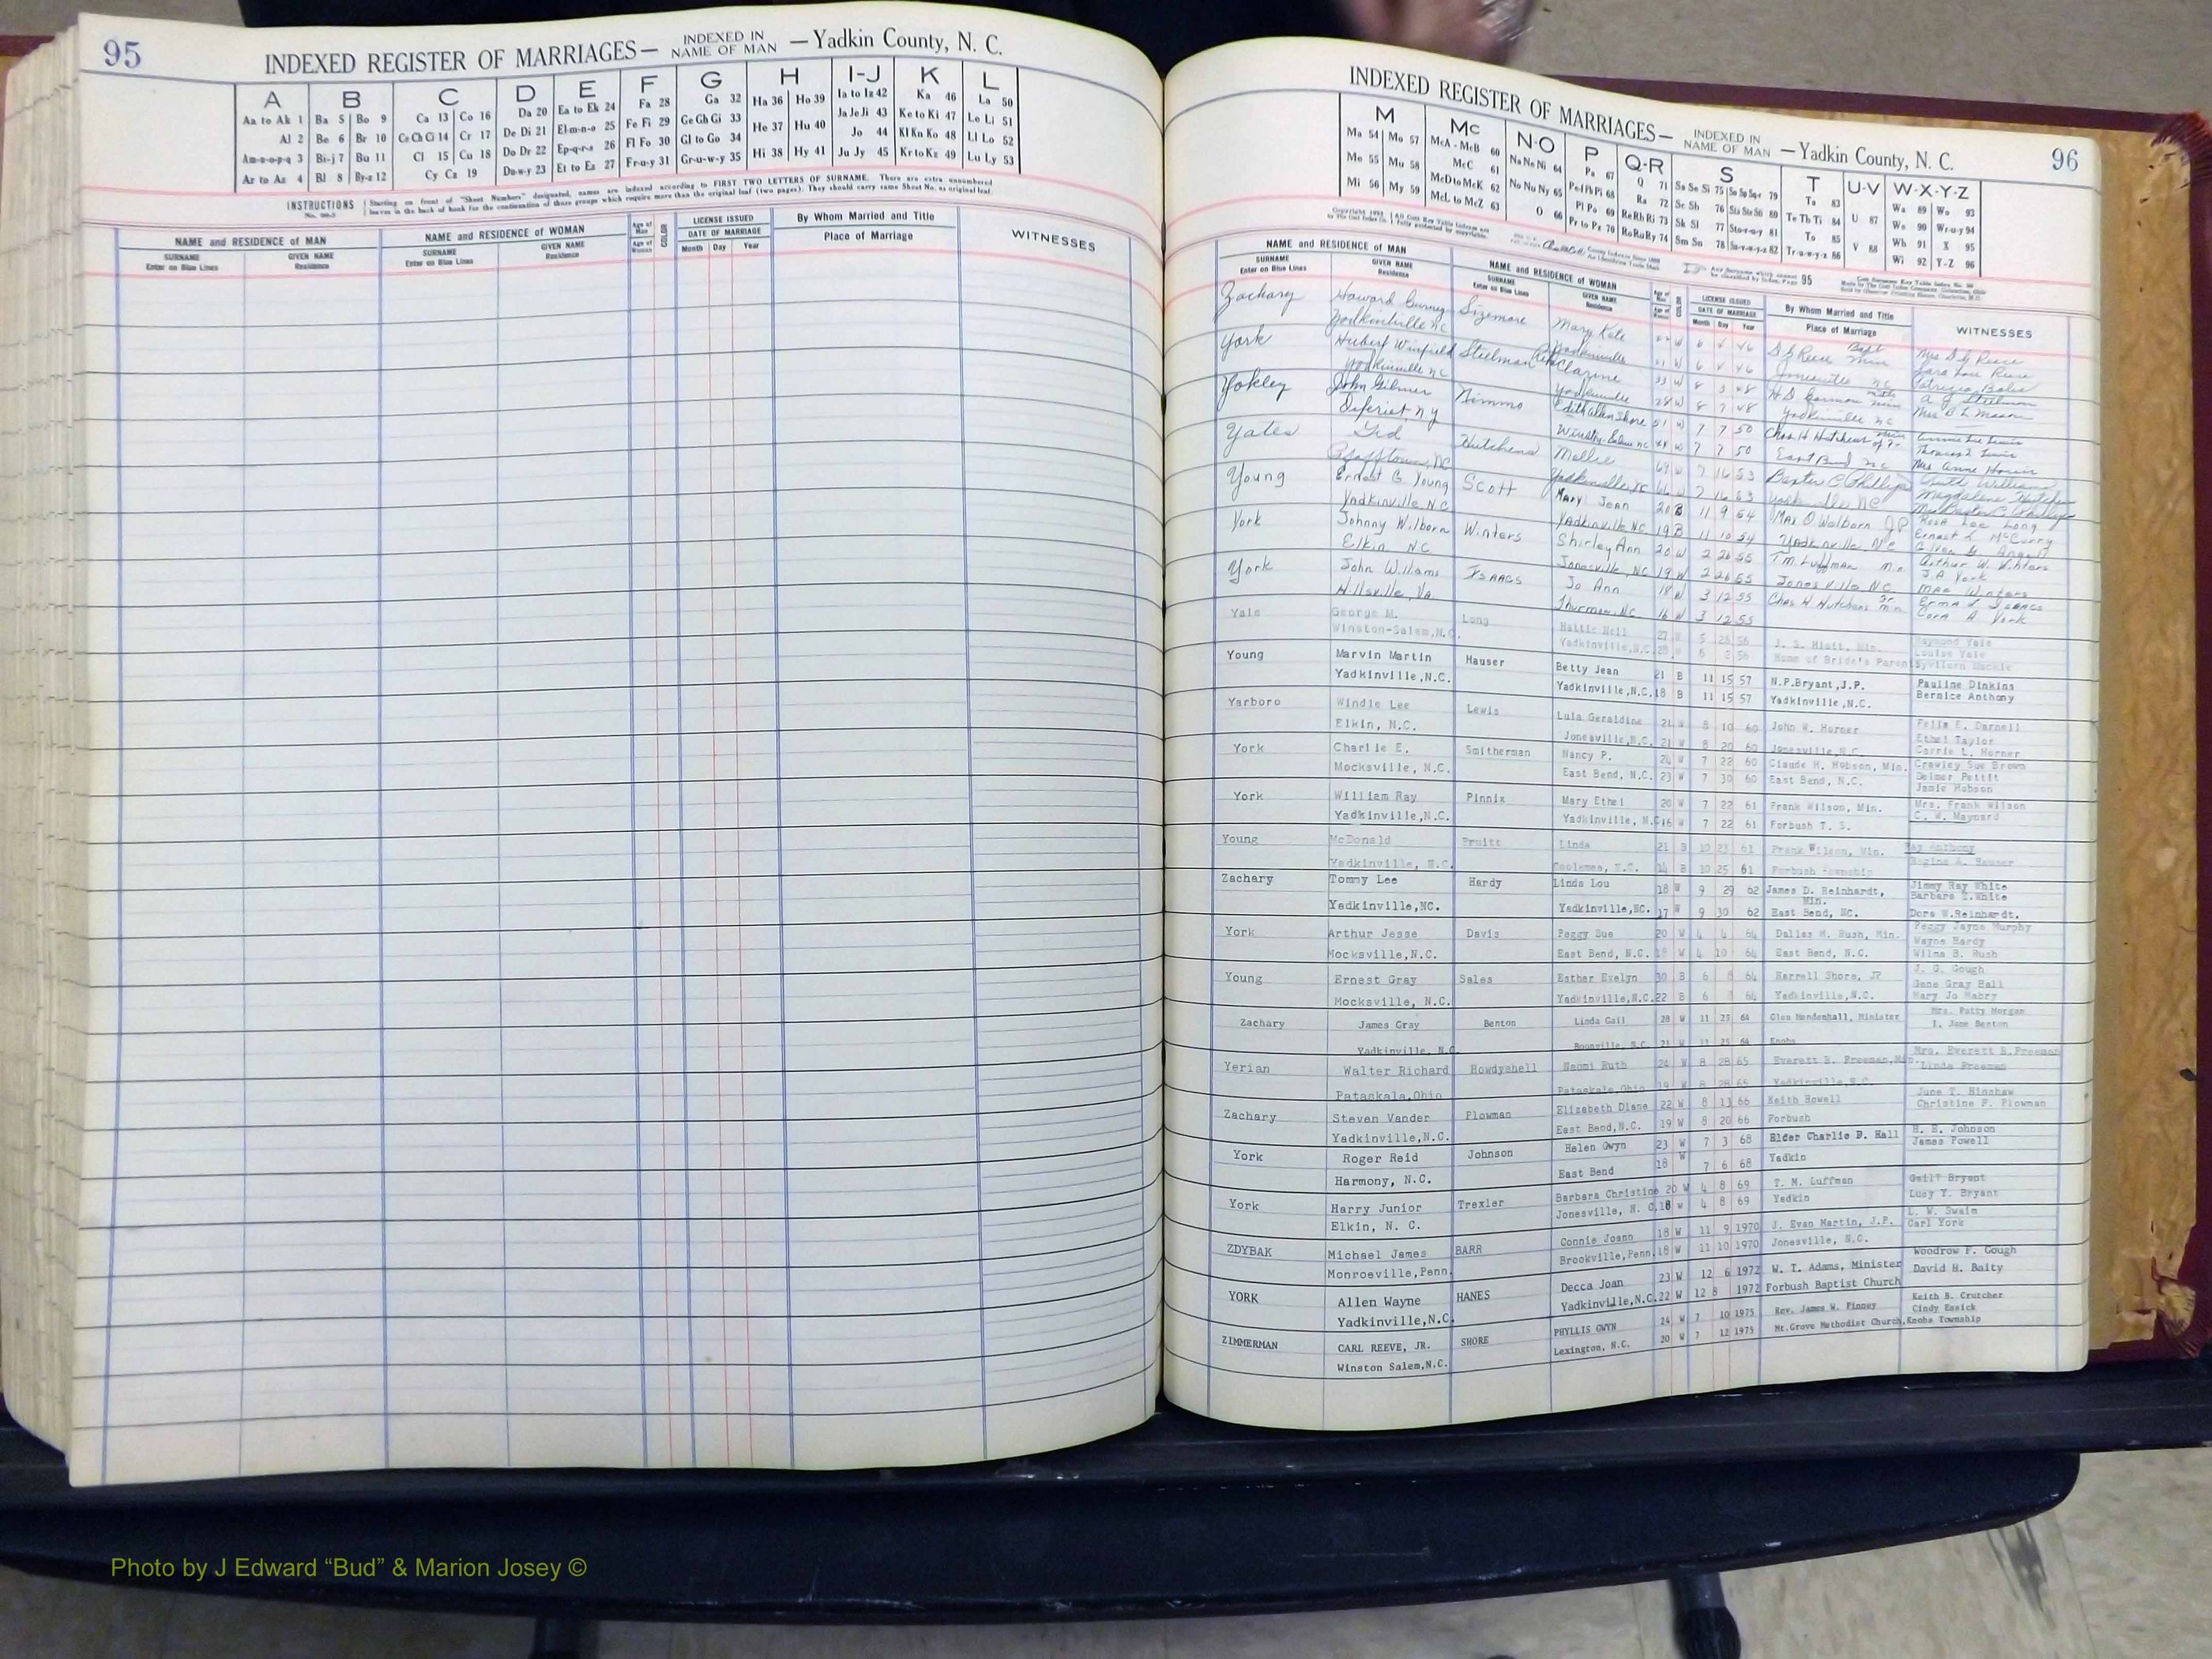 95
INDEXED REGISTER OF MARRIAGES— INDEXED IN NAME OF MAN —Yadkin County, N. C.
A B C D E F G H I-J K L
Aa to Ak 1 Ba 5 Bo 9 Ca 13 Co 16 Da 20 Ea to Ek 24 Fa 28 Ga 32 Ha 36 Ho 39 Ia to Iz 42 Ka 46 La 50
Al 2 Be 6 Br 10 Ce Ch Ci 14 Cr 17 De Di 21 El-m-n-o 25 Fe Fi 29 Ge Gh Gi 33 He 37 Hu 40 Ja Je Ji 43 Ke to Ki 47 Le Li 51
Am-n-o-p-q 3 Bi-j 7 Bu 11 Cl 15 Cu 18 Do Dr 22 Ep-q-r-s 26 Fl Fo 30 Gl to Go 34 Hi 38 Hy 41 Jo 44 Kl Kn Ko 48 Ll Lo 52
Ar to Az 4 Bl 8 By-z 12 Cy Cz 19 Du-w-y 23 Et to Ez 27 Fr-u-y 31 Gr-u-w-y 35 Ju Jy 45 Kr to Kz 49 Lu Ly 53
INSTRUCTIONS Starting on front of "Sheet Numbers" designated, names are indexed according to FIRST TWO LETTERS OF SURNAME. There are extra unnumbered
leaves in the back of book for the continuation of those groups which require more than the original leaf (two pages). They should carry same Sheet No. as original leaf.
NAME and RESIDENCE OF MAN NAME and RESIDENCE OF WOMAN Age of Man COLOR LICENSE ISSUED By Whom Married and Title WITNESSES
SURNAME GIVEN NAME SURNAME GIVEN NAME Age of Woman DATE OF MARRIAGE Place of Marriage
Enter on Blue Lines Residence Enter on Blue Lines Residence Month Day Year
INDEXED REGISTER OF MARRIAGES— INDEXED IN NAME OF MAN —Yadkin County, N. C.
96
M Mc N-O P Q-R S T U-V W-X-Y-Z
Ma 54 Mo 57 McA - McB 60 Na Ne Ni 64 Pa 67 Q 71 Sa Se Si 75 So Sp Sq-r 79 Ta 83 U 87 Wa 89 Wo 93
Me 55 Mu 58 McC 61 No Nu Ny 65 Pe Pf Ph Pi 68 Ra 72 Sc Sh 76 Sta Ste Sti 80 Te Th Ti 84 V 88 We 90 Wr-u-y 94
Mi 56 My 59 McD to McK 62 O 66 Pl Po 69 Re Rh Ri 73 Sk Sl 77 Sto-r-u-y 81 To 85 Wh 91 X 95
McL to McZ 63 Pr to Pz 70 Ro Ru Ry 74 Sm Sn 78 Su-v-w-y-z 82 Tr-u-w-y-z 86 Wi 92 Y-Z 96
NAME and RESIDENCE OF MAN NAME and RESIDENCE OF WOMAN LICENSE ISSUED By Whom Married and Title WITNESSES
SURNAME GIVEN NAME SURNAME GIVEN NAME DATE OF MARRIAGE Place of Marriage
Enter on Blue Lines Residence Enter on Blue Lines Residence Month Day Year
Zachary Howard Gurney Sizemore Mary Kate W 6 4 46 D G Reece Mrs D G Reece
Yadkinville NC Yadkinville W 6 4 46 Jonesville NC Sara Lou Reece
York Hubert Winfield Steelman Clazine 33 W 8 3 48 H D Garmon Patricia Boles
Yadkinville NC Yadkinville 28 W 8 7 48 Yadkinville NC A J Steelman
Yokley John Gilmer Nimmo Edith Allen Shore 51 W 7 7 50 Chas H Hutchens Annie Lee Lewis
Deferiet N Y Winston-Salem NC 48 W 7 7 50 East Bend NC Thomas L Lewis
Yates Gid Hutchens Mollie 69 W 7 16 53 Baxter C Phillips Ruth Williams
Pfafftown, NC Yadkinville NC 66 W 7 16 53 Yadkinville NC Magdalene Hutchens
Young Ernest G Young Scott Mary Jean 20 B 11 9 54 Max O Welborn JP Rosa Lee Long
Yadkinville NC Yadkinville NC 19 B 11 10 54 Yadkinville NC Ernest L McCurry
York Johnny Wilborn Winters Shirley Ann 20 W 2 26 55 T.M. Luffman Min Arthur W. Winters
Elkin NC Jonesville, NC 19 W 2 26 55 Jonesville NC J.A York
York John Willams Isaacs Jo Ann 18 W 3 12 55 Chas H Hutchens Sr. Min Erma L Isaacs
Hillsville, Va. Thurman, NC 16 W 3 12 55 Cora A York
Yale George M. Long Hattie Nell 27 W 5 28 56 J. S. Hiatt, Min. Raymond Yale
Winston-Salem, N.C. Yadkinville, N.C. 28 W 6 2 56 Home of Bride's Parents Louise Yale
Young Marvin Martin Hauser Betty Jean 21 B 11 15 57 N.P.Bryant,J.P. Pauline Dinkins
Yadkinville,N.C. Yadkinville,N.C. 18 B 11 15 57 Yadkinville,N.C. Bernice Anthony
Yarboro Windle Lee Lewis Lula Geraldine 21 W 8 10 60 John W. Horner Felix E. Darnell
Elkin, N.C. Jonesville,N.C. 21 W 8 20 60 Jonesville N.C. Ethel Taylor
Carrie L. Horner
York Charlie E. Smitherman Nancy P. 24 W 7 22 60 Claude H. Hobson, Min. Crawley Sue Brown
Mocksville, N.C. East Bend, N.C. 23 W 7 30 60 East Bend, N.C. Delmer Pettit
Jamie Hobson
York William Ray Pinnix Mary Ethel 20 W 7 22 61 Frank Wilson, Min. Mrs. Frank Wilson
Yadkinville,N.C. Yadkinville, N.C. 16 W 7 22 61 Forbush T. S. C. W. Maynard
Young McDonald Pruitt Linda 21 B 10 23 61 Frank Wilson, Min. Ray Anthony
Yadkinville, N.C. Cooleemee, N.C. B 10 25 61 Forbush Township Regina A. Hauser
Zachary Tommy Lee Hardy Linda Lou 18 W 9 29 62 James D. Reinhardt, Min. Jimmy Ray White
Barbara Z.White
Yadkinville,NC. Yadkinville,NC. 17 W 9 30 62 East Bend, NC. Dora W.Reinhardt.
York Arthur Jesse Davis Peggy Sue 20 W 4 4 64 Dallas M. Rush, Min. Peggy Jayne Murphy
Wayne Hardy
Mocksville,N.C. East Bend, N.C. 18 W 4 10 64 East Bend, N.C. Wilma B. Rush
Young Ernest Gray Sales Esther Evelyn 30 B 6 8 64 Harrell Shore, JP J. G. Gough
Gene Gray Hall
Mocksville, N.C. Yadkinville,N.C. 22 B 6 8 64 Yadkinville,N.C. Mary Jo Mabry
Zachary James Gray Benton Linda Gail 28 W 11 25 64 Glen Mendenhall, Minister Mrs. Patty Morgan
I. Jane Benton
Yadkinville, N.C. Boonville, N.C. 21 W 11 25 64 Knobs
Yerian Walter Richard Howdyshell Naomi Ruth 24 W 8 28 65 Everett B. Freeman,Min. Mrs. Everett B.Freeman
Linda Freeman
Pataskala,Ohio Pataskala Ohio 19 W 8 28 65 Yadkinville,N.C.
Zachary Steven Vander Plowman Elizabeth Diane 22 W 8 13 66 Keith Howell June T. Hinshaw
Yadkinville,N.C. East Bend,N.C. 19 W 8 20 66 Forbush Christine P. Plowman
York Roger Reid Johnson Helen Gwyn 23 W 7 3 68 Elder Charlie B. Hall H. B. Johnson
Harmony, N.C. East Bend 18 W 7 6 68 Yadkin James Powell
York Harry Junior Trexler Barbara Christine 20 W 4 8 69 T. M. Luffman Gail Bryant
Elkin, N. C. Jonesville, N. C. 18 W 4 8 69 Yadkin Lucy T. Bryant
ZDYBAK Michael James BARR Connie Joann 18 W 11 9 1970 J. Evan Martin, J.P. L. W. Swaim
Monroeville,Penn. Brookville,Penn. 18 W 11 10 1970 Jonesville, N.C. Carl York
YORK Allen Wayne HANES Decca Joan 23 W 12 6 1972 W. T. Adams, Minister Woodrow F. Gough
Yadkinville,N.C. Yadkinville,N.C. 22 W 12 8 1972 Forbush Baptist Church David H. Baity
ZIMMERMAN CARL REEVE, JR. SHORE PHYLLIS GWYN 24 W 7 10 1975 Rev. James W. Pinney Keith B. Crutcher
Cindy Essick
Winston Salem,N.C. Lexington, N.C. 20 W 7 12 1975 Mt.Grove Methodist Church,Knobs Township
Photo by J Edward “Bud” & Marion Josey ©